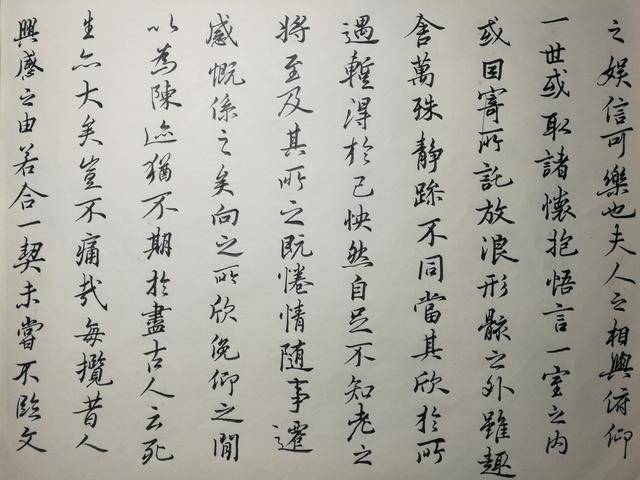 之娛信可樂也夫人之相與俯仰
一世或取諸懷抱悟言一室之内
或因寄所託放浪形骸之外雖趣
舍萬殊静躁不同當其欣於所
遇蹔得於己怏然自足不知老之
將至及其所之既惓情随事遷
感慨係之矣向之所欣俛仰之閒
以為陳迹猶不期於盡古人云死
生亦大矣豈不痛哉每攬昔人
興感之由若合一契未嘗不臨文